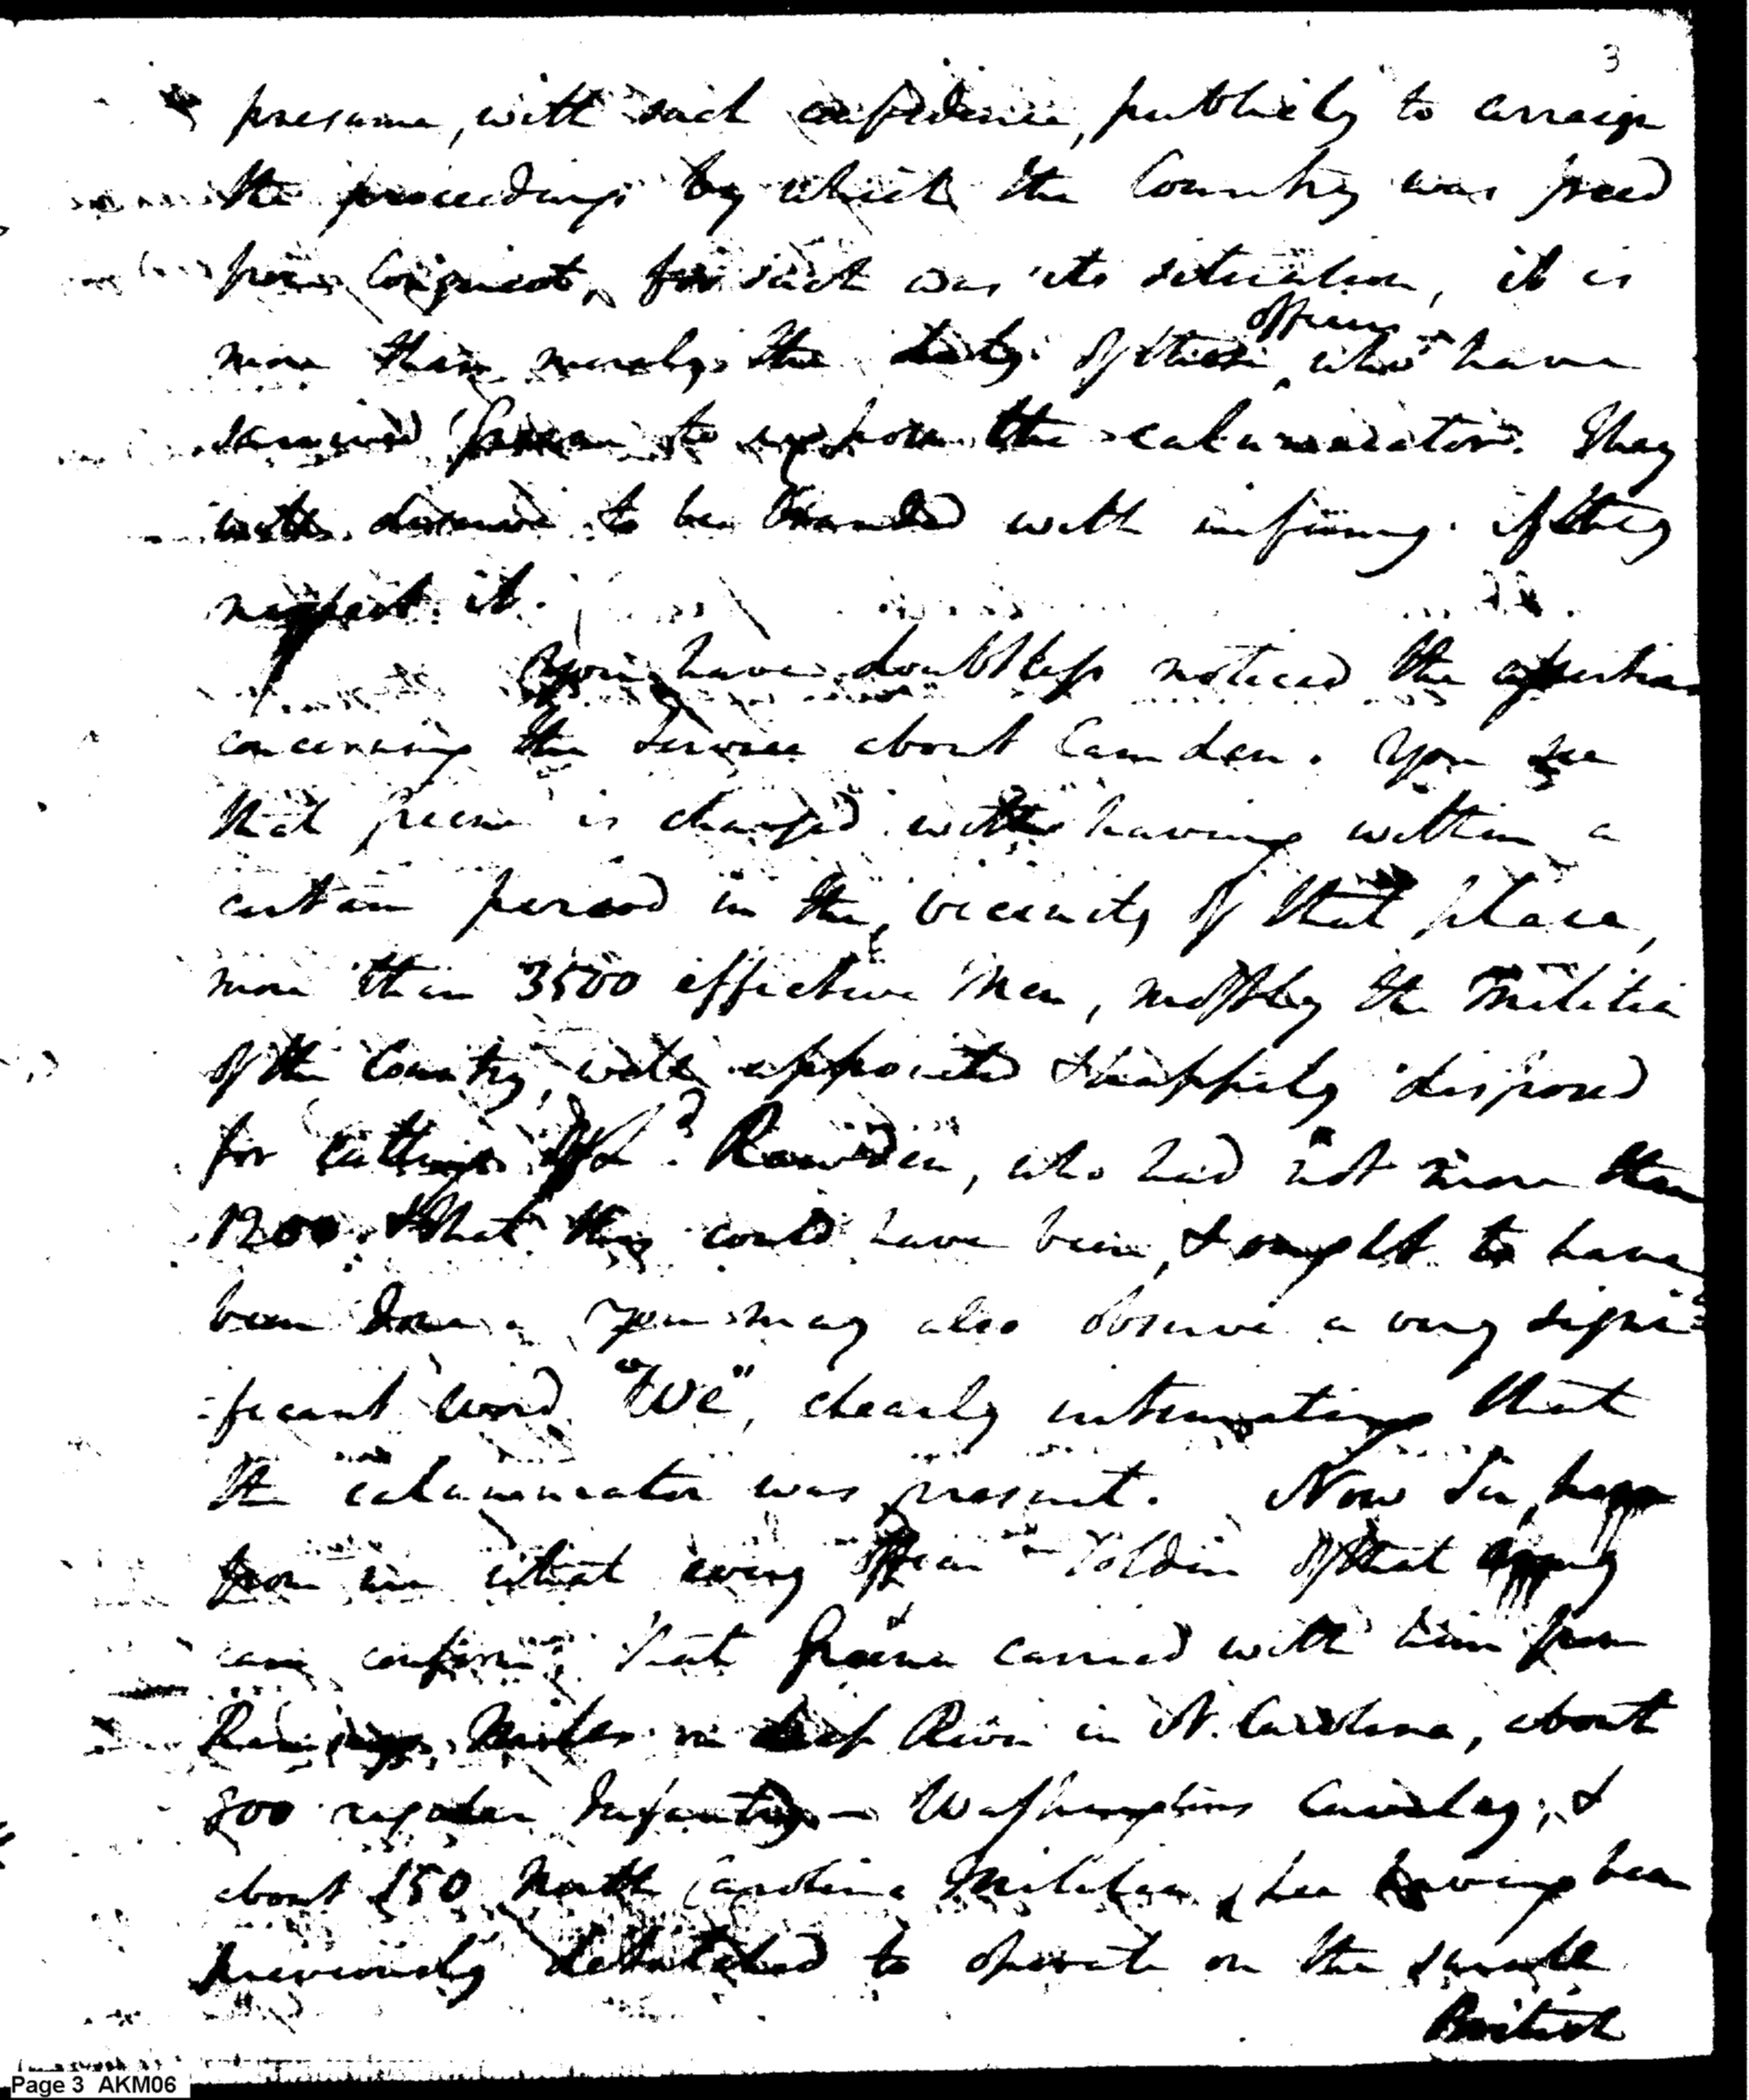 3
presume, with such confidence, publickly to arraign
the proceedings by which the Country was freed
from Conquest, for such was its situation, it is
officers
more than merely the duty of those who have
survived Greene to expose the calumniator. They
will deserve to be branded with infamy if they
neglect it.
You have doubtless noticed the assertion
concerning the service about Camden. You see
that Greene is charged with having within a
certain period in the vicinity of that place,
more than 3500 effective Men, mostly the Militia
of the Country, well appointed & happily disposed
for cutting off Ld. Rawden, who had not more than
1200. & that this could have been, & ought to have
been done. You may also observe a very signi-
-ficant word "We", clearly intimating that
the calumniator was present. Now Sir, hear
from me what every officer & Soldier of that army
can confirm; that Greene carried with him from
Ramsays Mills on deep River in N. Carolina, about
800 regular Infantry - Washingtons Cavalry, &
about 150 North Carolina Militia, Lee having been
previously detached to operate on the small
British
Page 3 AKM06